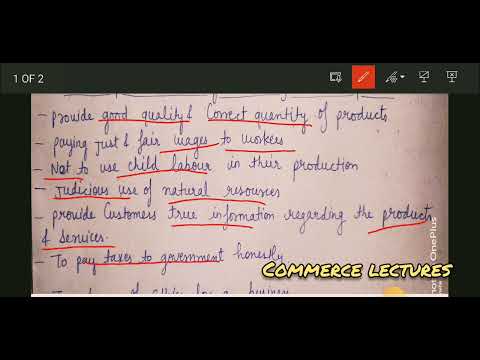 1 OF 2
- provide good quality & Correct quantity of products
- paying just & fair wages to workers
- Not to use child labour in their production
- Judicious use of natural resources
- provide Customers true information regarding the products
& services.
- To pay taxes to government honestly
COMMERCE LECTURES
OnePlus
business